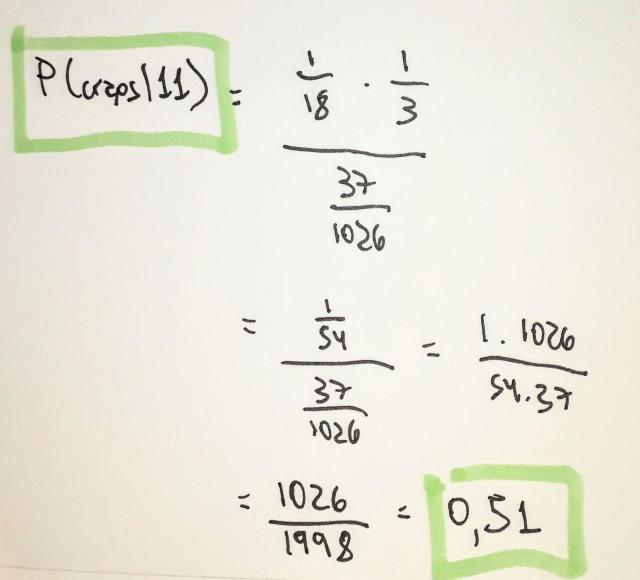 P(craps|11) = 1/18 · 1/3 / 37/1026
= 1/54 / 37/1026 = 1.1026 / 54.37
= 1026/1998 = 0,51